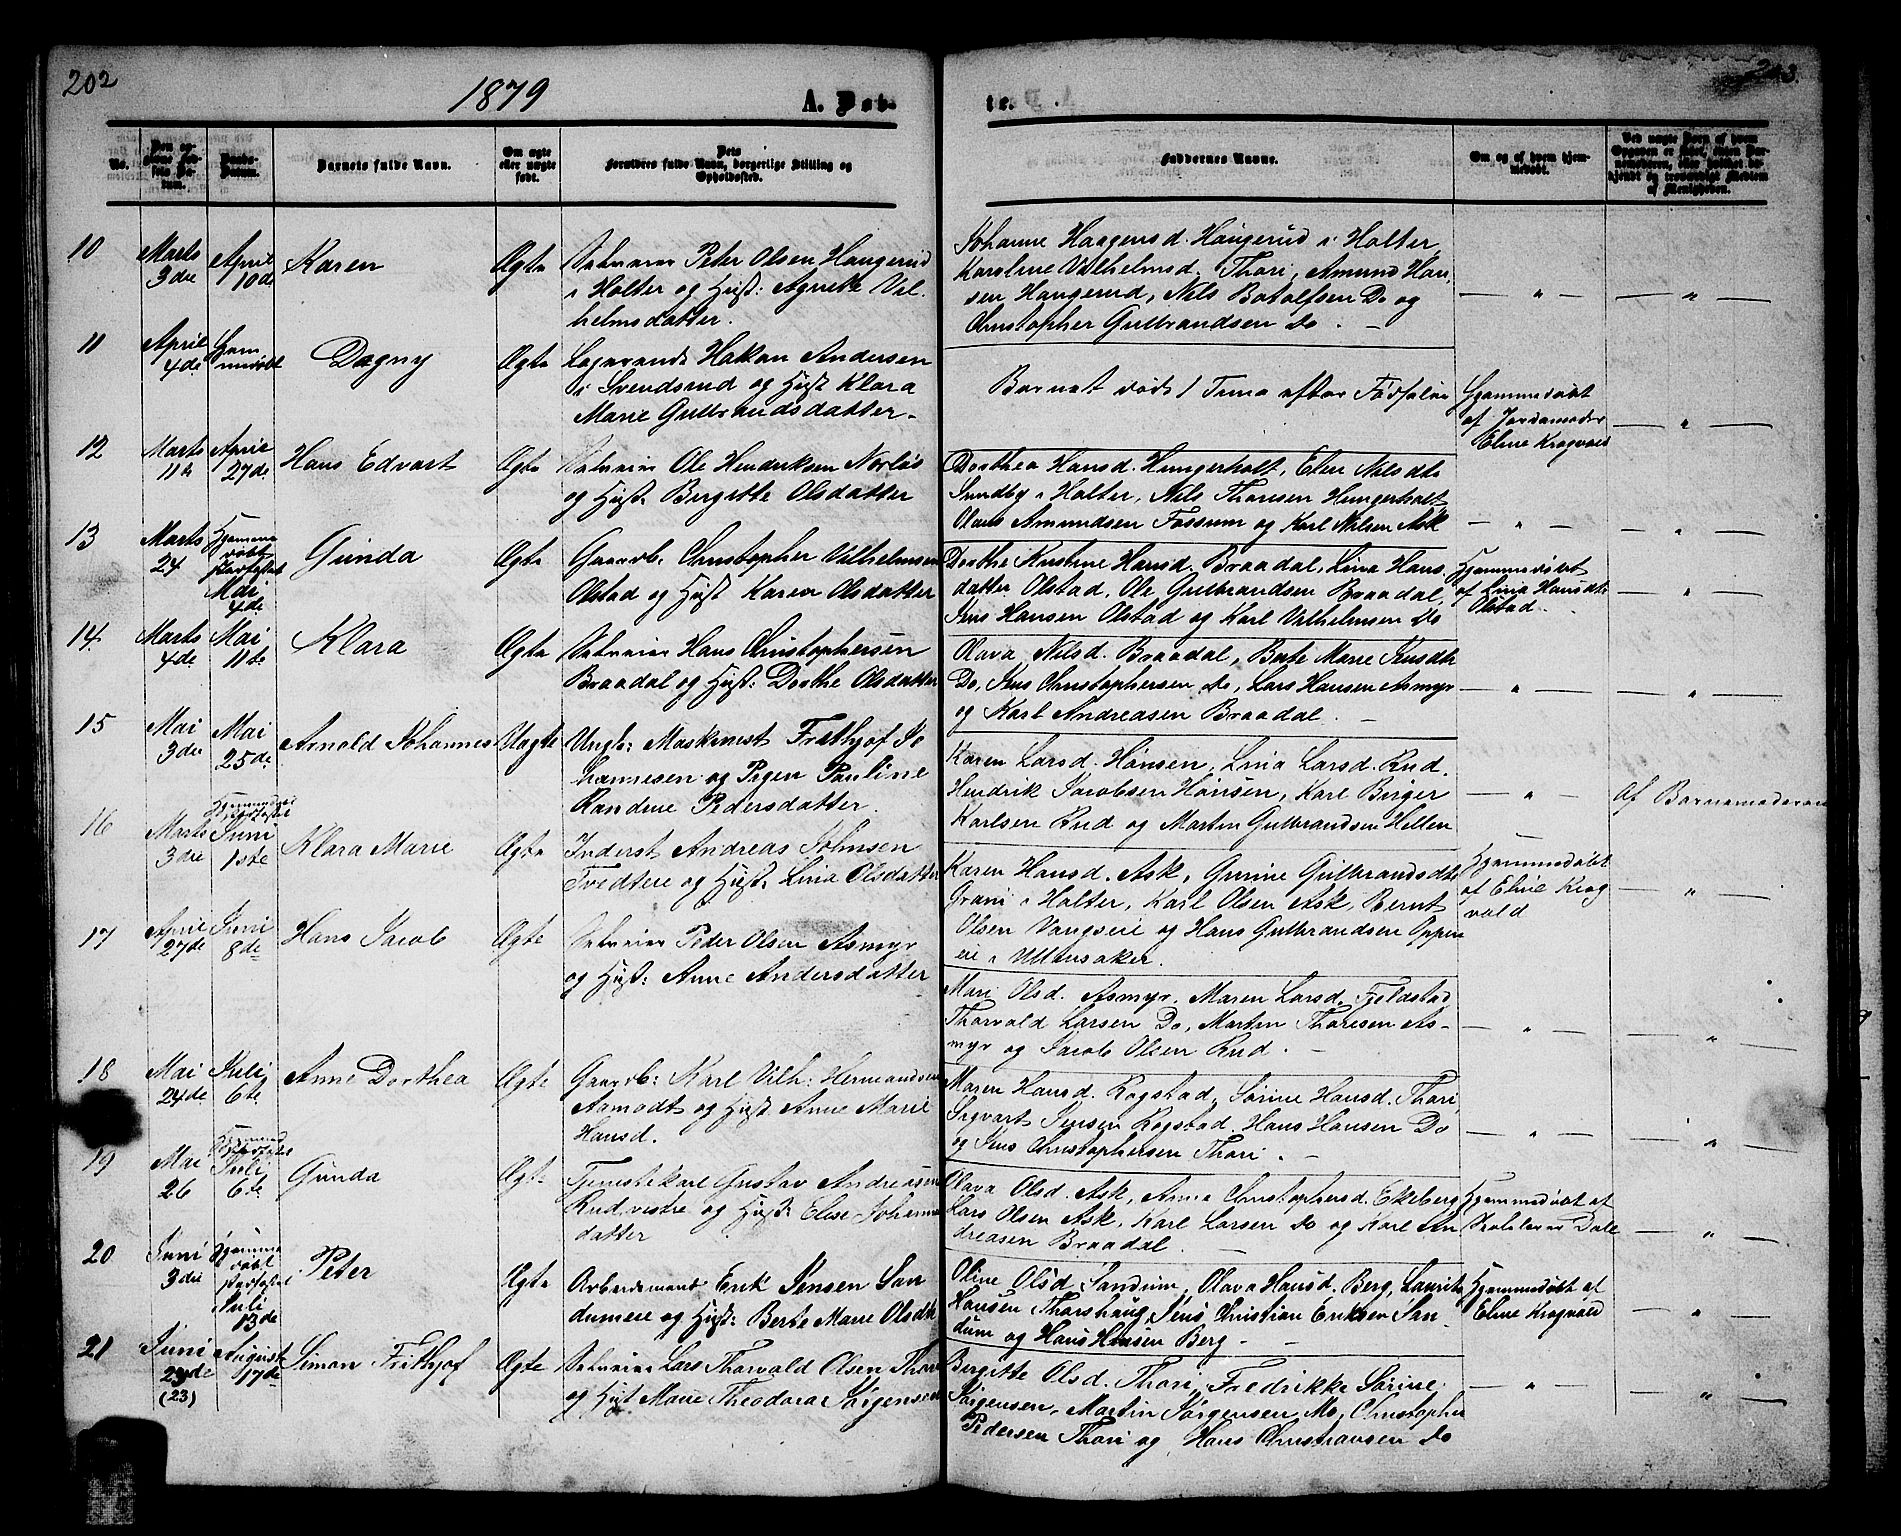 202
1879
A. Døb-
te.
203.
No.
Den opgivne Fødsels Datum.
Daabs-Datum.
Barnets fulde Navn.
Om ægte eller uægte født.
Dets Forældres fulde Navn, borgerlige Stilling og Opholdssted.
Faddernes Navne.
Om og af hvem hjemmedøbt.
10
Marts 3die
April 10de
Karen
Ægte
Selveier Peter Olsen Haugerud
i Holter og Hust: Agnethe Vil-
helmsdatter.
Johanne Haagensd. Haugerud i Holter,
Karoline Vilhelmsd. Thori, Amund Han-
sen Haugerud, Nils Botolfsen Do og
Christopher Gulbrandsen Do. —
— " —
— " —
11
April 4de
Hjem
medøbt
Dagny
Ægte
Hakon Andersen
i Svendsrud og Hust Klara
Marie Gulbrandsdatter.
Barnet døde 1 Time efter Fødselen
Hjemmedøbt
af Jordemoder
Eline Kragvold
— " —
12
Marts 11te
April 27de
Hans Edvart
Ægte
Selveier Ole Hendriksen Norlös
og Hust. Bergitte Olsdatter
Dorthea Hansd. Hungerholt, Eline Nilsdtr
Sundby i Holter, Nils Thoresen Hungerholt
Hans Amundsen Fossum og Karl Nilsen Ask
— " —
— " —
13
Marts 24
Hjemme
døbt
Mai
4de
Gunda
Ægte
Gaardb. Christopher Vilhelmsen
Olstad og Hust Karen Olsdatter
Dorthe Kristine Hansd. Braadal, Lina Hans-
datter Olstad, Ole Gulbrandsen Braadal,
Jens Hansen Olstad og Karl Vilhelmsen Do
Hjemmedøbt
af Lina Hansdtr
Olstad.
— " —
14.
Marts 4de
Mai 11te
Klara
Ægte
Selveier Hans Christophersen
Braadal og Hust: Dorthe Olsdatter
Olava Nilsd. Braadal, Berte Marie Jensdtr
Do, Jens Christophersen Do, Lars Hansen Asmyr
og Karl Andreasen Braadal. —
— " —
— " —
15
Mai 3die
Mai 25de
Arnold Johannes
Uægte
Ungk: Maskinist Frithjof Jo
hannesen og Pigen Pauline
Randine Pedersdatter.
Karen Larsd. Hansen, Lina Larsd. Rud,
Hendrik Jacobsen Hansen, Karl Berger
Karlsen Rud og Martin Gulbrandsen Hellen
— " —
Af Barnemoderen
16
Marts 3die
Juni 1ste
Klara Marie
Ægte
Inderst Andreas Johnsen
Tvedtere og Hust: Lina Olsdatter
Karen Hansd. Ask, Gurine Gulbrandsdtr
Grani i Holter, Karl Olsen Ask, Bernt
Olsen Vangseie og Hans Gulbrandsen Oppen
eie i Ullensaker.
Hjemmedøbt
af Eline Krog
vold
— " —
17
April 27de
Juni 8de
Hans Jacob
Ægte
Selveier Peder Olsen Asmyr
og Hust: Anne Andersdatter
Mari Olsd. Asmyr, Maren Larsd. Fjeldstad
Thorvald Larsen Do, Martin Thoresen As-
myr og Jacob Olsen Rud. —
— " —
— " —
18
Mai 24de
Juli 6te
Anne Dorthea
Ægte
Gaardb: Karl Vilh: Hermandsen
Aamodt og Hust Anne Marie
Hansd.
Maren Hansd. Rogstad, Sørine Hansd. Thori,
Sagvart Jensen Rogstad, Hans Hansen Do
og Jens Christophersen Thori. —
— " —
— " —
19
Mai 26
Juli 6te
Gunda
Ægte
Tjenestekarl Gustav Andreasen
Rud vestre og Hust: Elise Johanne
datter
Olava Olsd. Ask, Anna Christophersd. Ekeberg
Lars Olsen Ask, Karl Larsen Do og Karl An
dreasen Braadal. —
Hjemmedøbt af
Skolelærer Dale
— " —
20
Juni 3die
Hjemme
døbt
Juli
13de
Peter
Ægte
Arbeidsmand Erik Jensen San
dumeie og Hust: Berte Marie Olsdtr
Oline Olsd Sandum, Olava Hansd. Berg, Laurits
Hansen Thorshaug, Jens Christian Eriksen San-
dum og Hans Hansen Berg —
Hjemmedøbt af
Eline Krogvold
— " —
21
Juni 23de
(23)
August 17de
Simon Frithjof
Ægte
Selveier Lars Thorvald Olsen Thori
og Hust Marie Theodora Jørgensen
Bergitte Olsd. Thori, Fredrikke Sørine
Jørgensen, Martin Jørgensen Mo, Christopher
Pedersen Thori og Hans Christiansen Do
— " —
— " —